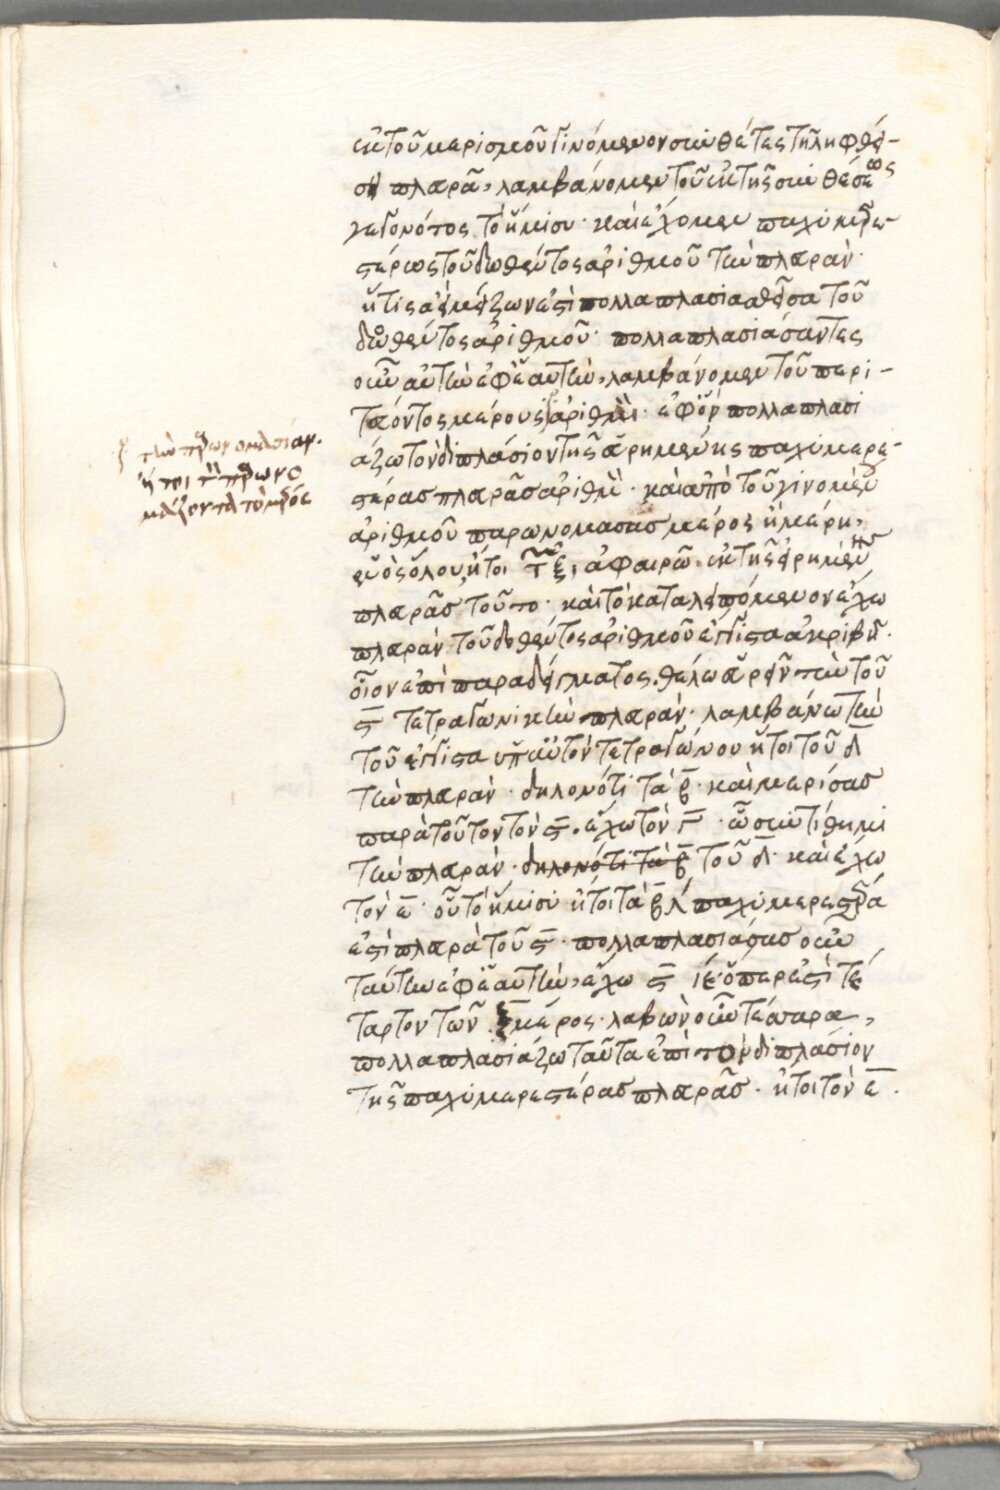 ἐκ τοῦ μερισμοῦ γινόμενον συνθέντες τῇ ληφθεί-
σῃ πλευρᾷ, λαμβάνομεν τοῦ ἐκ τῆς συνθέσεως
γεγονότος τὸ ἥμισυ· καὶ ἔχομεν παχυμερε-
στέρως τοῦ δοθέντος ἀριθμοῦ τὴν πλευράν·
ἥτις ἀεὶ μείζων ἐστὶ πολλαπλασιασθεῖσα τοῦ
δοθέντος ἀριθμοῦ· πολλαπλασιάσαντες
οὖν αὐτὴν ἐφ' ἑαυτήν, λαμβάνομεν τοῦ περι-
τὴν παρωνομασίαν.
ἤτοι τὸν παρωνο
μάζοντα τὸ μόριον
τεύοντος μέρους ἀριθμόν· ἐφ' ὃν πολλαπλασι
άζω τὸν διπλάσιον τῆς εὑρημένης παχυμερε-
στέρας πλευρᾶς ἀριθμόν· καὶ ἀπὸ τοῦ γινομένου
ἀριθμοῦ παρωνομάσας μέρος ἢ μέρη,
ἑνὸς ὅλου, ἤτοι τῶν ξ, ἀφαιρῶ ἐκ τῆς εἰρημένης
πλευρᾶς τοῦτο· καὶ τὸ καταλειπόμενον ἔχω
πλευρὰν τοῦ δοθέντος ἀριθμοῦ ἔγγιστα ἀκριβῆ.
οἷον ἐπὶ παραδείγματος. θέλω εὑρεῖν τὴν τοῦ
ς̅ τετραγωνικὴν πλευράν· λαμβάνω τὴν
τοῦ ἔγγιστα ὑπ' αὐτὸν τετραγώνου ἤτοι τοῦ δ̅
τὴν πλευράν· δηλονότι τὰ β̅· καὶ μερίσας
παρὰ τοῦτον τὸν ς̅, ἔχω τὸν γ̅· ᾧ συντίθημι
τὴν πλευράν· δηλονότι τὰ β̅ τοῦ δ̅· καὶ ἔχω
τὸν ε̅· οὗ τὸ ἥμισυ ἤτοι τὰ β̅ λ παχυμερεστέρα
ἐστὶ πλευρὰ τοῦ ς̅· πολλαπλασιάσας οὖν
ταύτην ἐφ' ἑαυτήν, ἔχω ς̅ ιε· ὅπερ ἐστὶ τέ
ταρτον τῶν ξ̅ μέρος· λαβὼν οὖν τέσσαρα,
πολλαπλασιάζω ταῦτα ἐπὶ τὸν διπλάσιον
τῆς παχυμερεστέρας πλευρᾶς· ἤτοι τὸν ε̅.